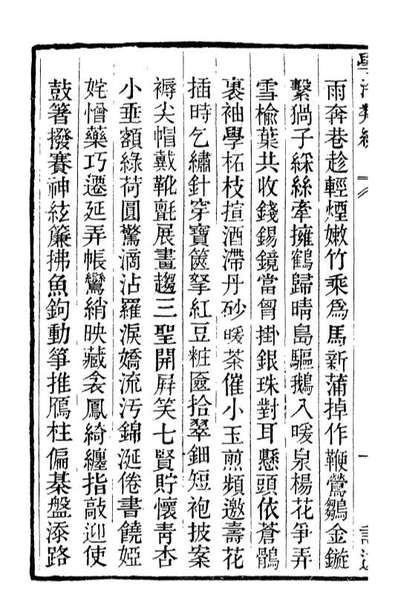 雨奔巷趁輕煙嫩竹乘爲馬新蒲掉作鞭鶯鶵金鏇
繫猧子綵絲牽擁鶴歸晴島驅鵝入暖泉楊花爭弄
雪榆葉共收錢錫鏡當胷掛銀珠對耳懸頭依蒼鶻
裹袖學柘枝揎酒滯丹砂暖茶催小玉煎頻邀壽花
插時乞繡針穿寶篋拏紅豆粧匳拾翠鈿短袍披案
褥尖帽戴靴氈展畫趨三聖開屛笑七賢貯懷靑杏
小垂額綠荷圓驚滴沾羅淚嬌流汚錦涎倦書饒婭
姹憎藥巧遷延弄帳鸞綃映藏衾鳳綺纏指敲迎使
鼓箸撥賽神絃簾拂魚鉤動箏推鴈柱偏棊盤添路